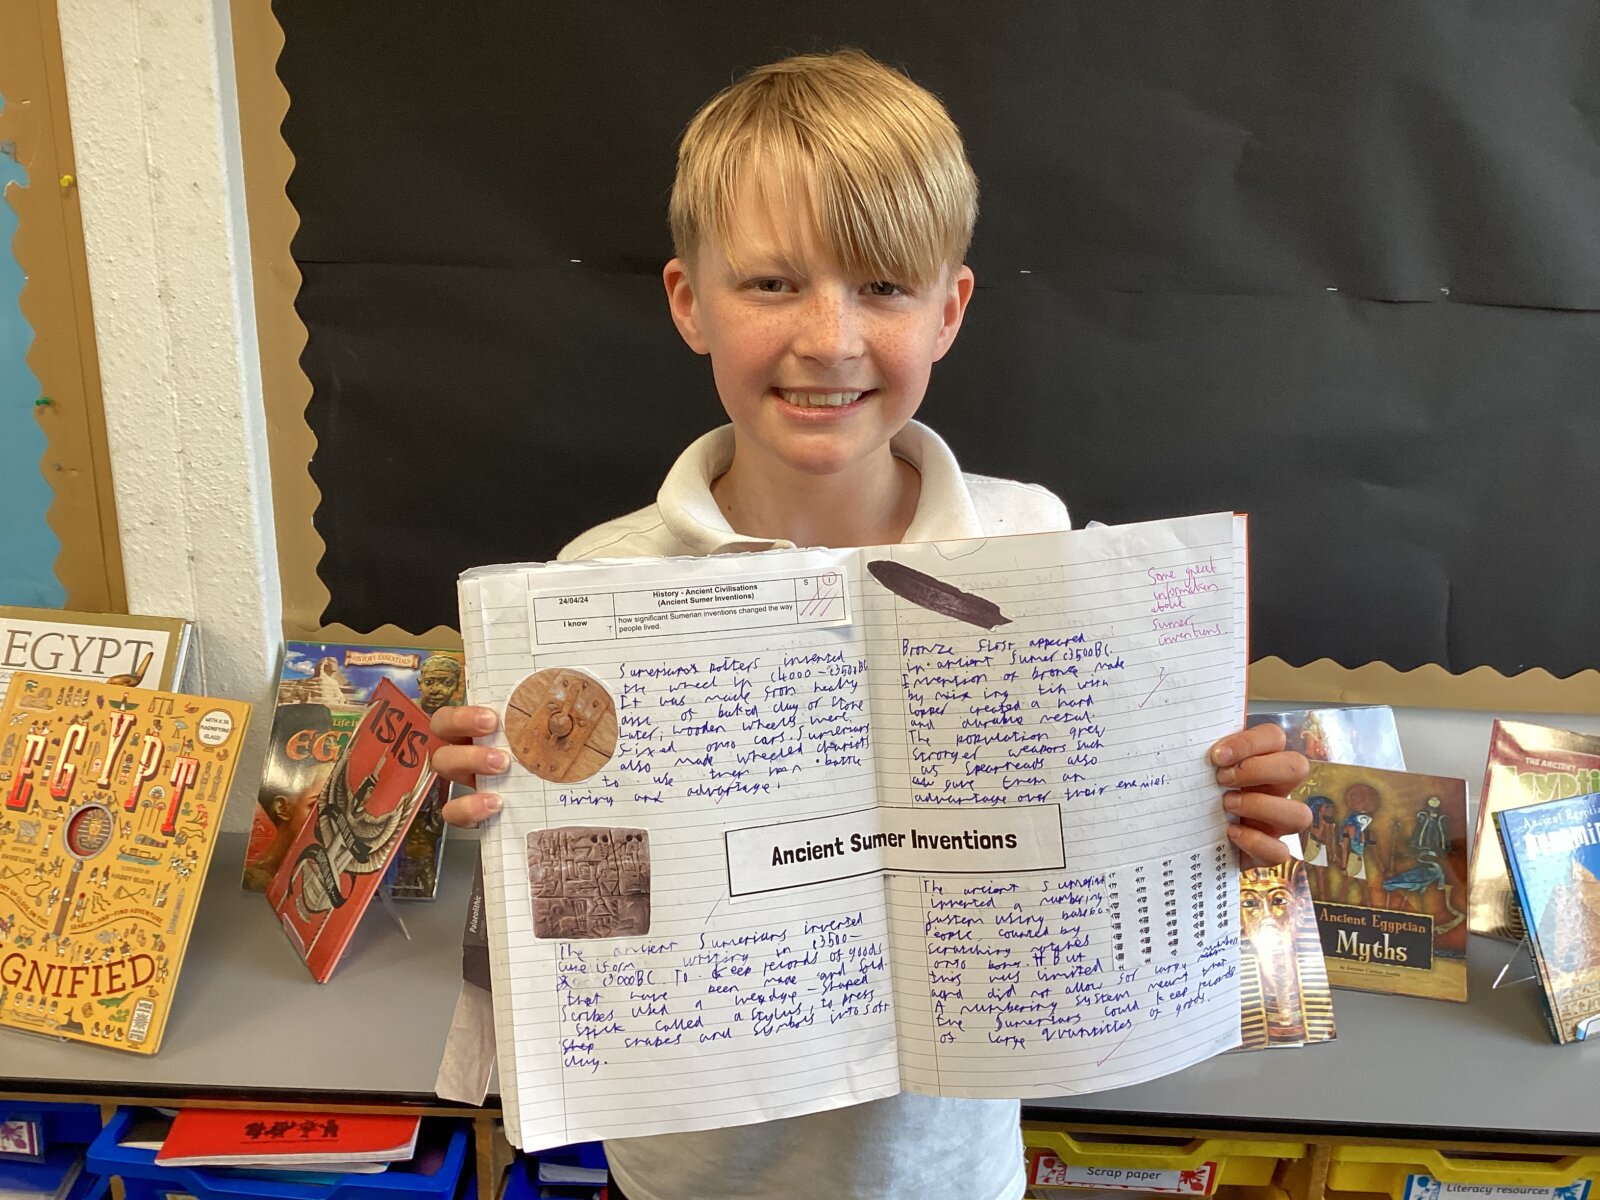 24/04/24
History - Ancient Civilisations
(Ancient Sumer Inventions)
S
I
I know
how significant Sumerian inventions changed the way
people lived.
potters invented
the wheel in c4000 - c3500BC.
It was made from heavy
of baked clay or stone
Later, wooden wheels were
fixed onto cars. Sumerians
also made wheeled chariots
to use battle
giving and advantage.
Ancient Sumer Inventions
The ancient Sumerians invented
writing in c3500 -
c3000BC. To keep records of goods
that have been made and sold.
Scribes used a wedge - shaped
stick called a stylus, to press
shapes and symbols into soft
clay.
Some great
information
about
Sumer
inventions
Bronze first appeared
in ancient Sumer c3500BC.
Invention of bronze made
by mixing tin with
copper created a hard
and durable metal.
The population grew,
stronger weapons such
as spearheads also
gave them an
advantage over their enemies.
The ancient Sumerians
invented a numbering
system using
People counted by
scratching notches
onto bone. But
this was limited
and did not allow for large numbers
A numbering system meant that
the Sumerians could keep records
of large quantities of goods.
EGYPT
EGYPT
WITH A 3X
MAGNIFYING
GLASS!
DAVID LONG
HARRY BLOOM
GNIFIED
HISTORY ESSENTIALS
Life in
EG
ISIS
Palaeolithic
THE ANCIENT
Ancient Egyptian
Myths
Ancient Egyptian
Scrap paper
Literacy resources